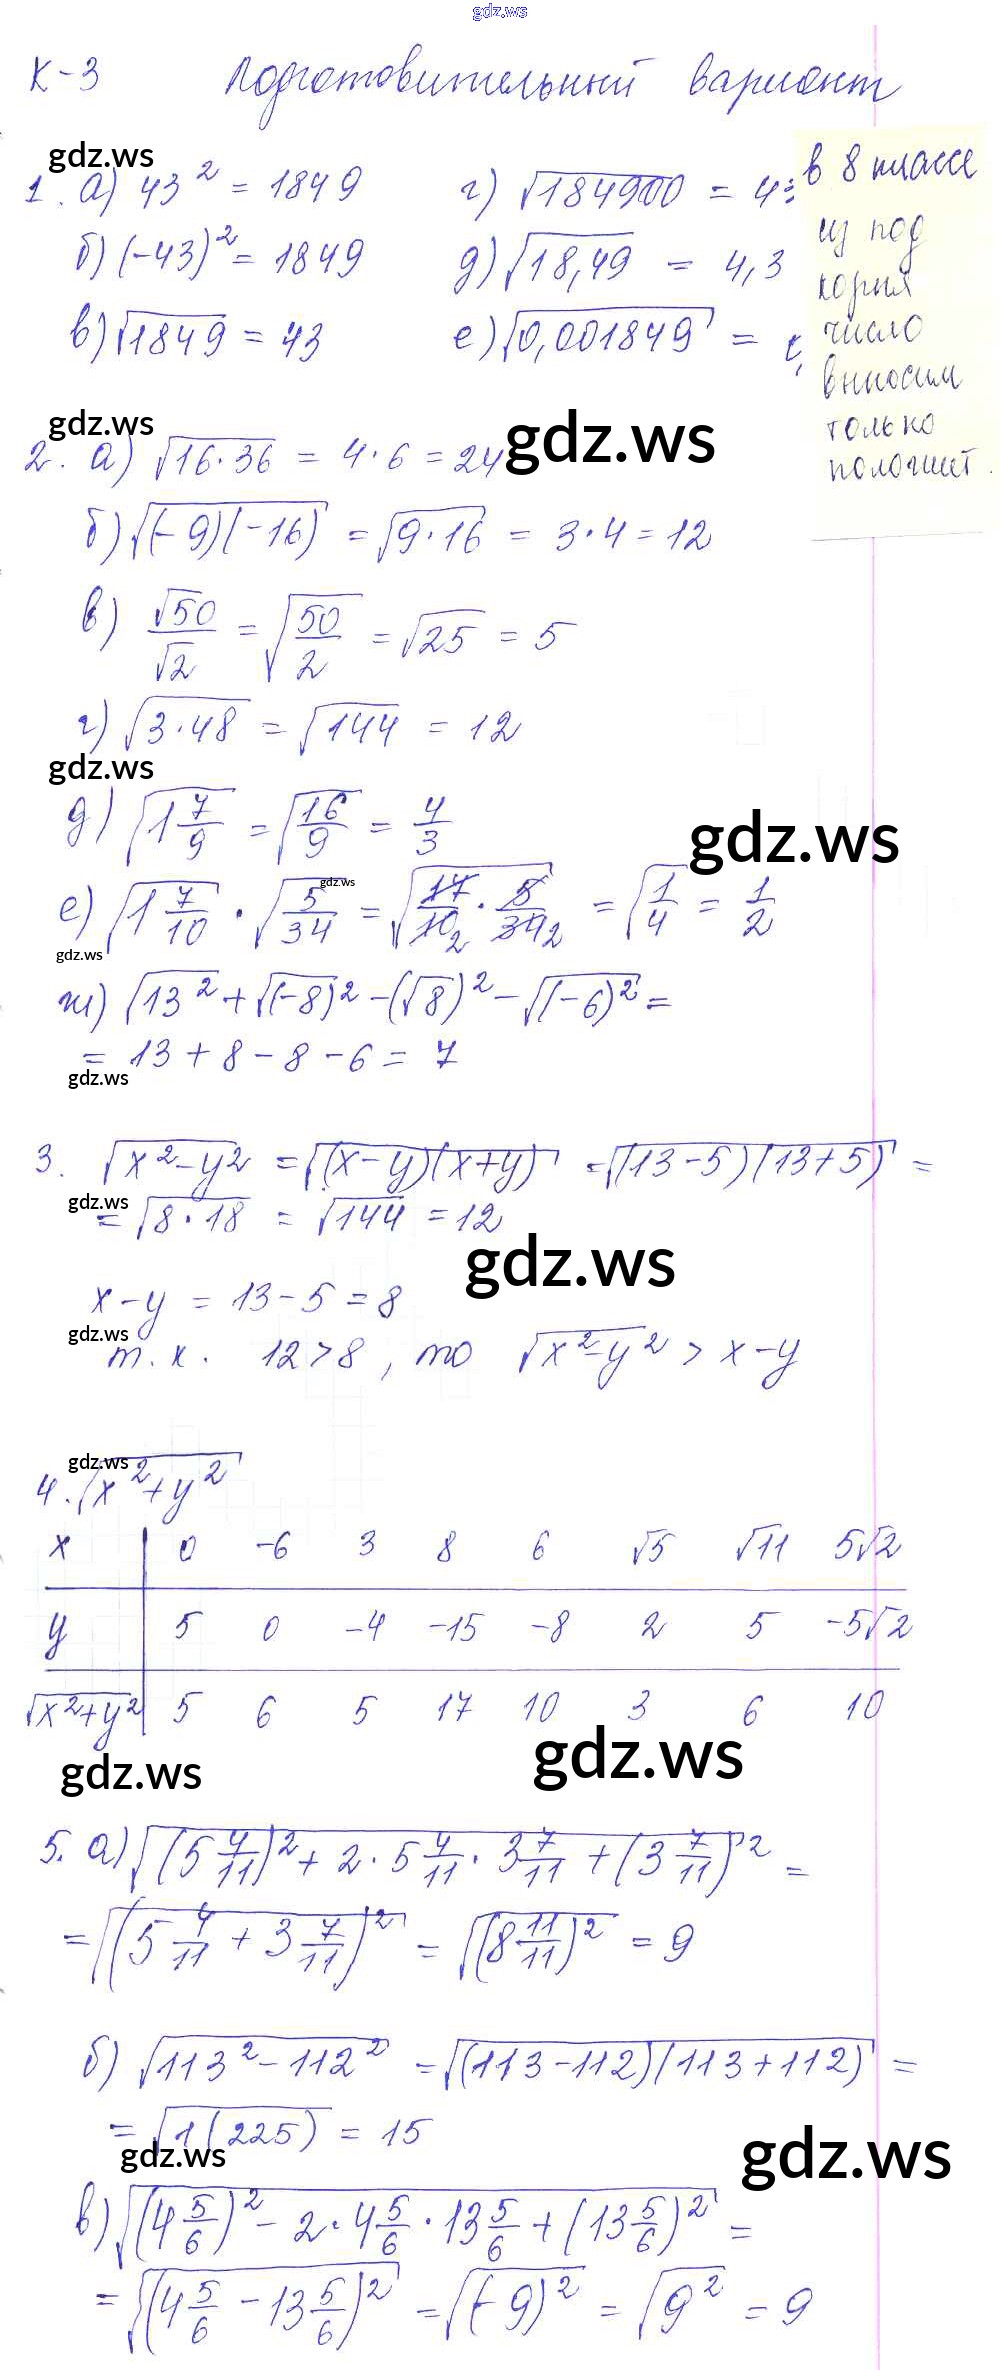 gdz.ws
К-3 Подготовительный вариант
gdz.ws
1. а) 43² = 1849
г) √184900 = 43
б) (-43)² = 1849
д) √18,49 = 4,3
в) √1849 = 43
е) √0,001849 =
в 8 классе
из под
корня
число
выносим
только
положит.
gdz.ws
gdz.ws
2. а) √16·36 = 4·6 = 24
б) √(-9)(-16) = √9·16 = 3·4 = 12
в) √50/√2 = √50/2 = √25 = 5
г) √3·48 = √144 = 12
gdz.ws
gdz.ws
д) √1 7/9 = √16/9 = 4/3
gdz.ws
е) √1 7/10 · √5/34 = √17/10 2 · 5/34 2 = √1/4 = 1/2
gdz.ws
ж) √13² + √(-8)² - (√8)² - √(-6)² =
= 13 + 8 - 8 - 6 = 7
gdz.ws
3. √x²-y² = √(x-y)(x+y) = √(13-5)(13+5) =
gdz.ws
= √8·18 = √144 = 12
gdz.ws
x-y = 13-5 = 8
gdz.ws
т.к. 12>8, то √x²-y² > x-y
gdz.ws
4. √x²+y²
x 0 -6 3 8 6 √5 √11 5√2
y 5 0 -4 -15 -8 2 5 -5√2
√x²+y² 5 6 5 17 10 3 6 10
gdz.ws
gdz.ws
5. а) √(5 4/11)² + 2·5 4/11·3 7/11 + (3 7/11)² =
= √(5 4/11 + 3 7/11)² = √(8 11/11)² = 9
б) √113²-112² = √(113-112)(113+112) =
= √1(225) = 15
gdz.ws
gdz.ws
в) √(4 5/6)² - 2·4 5/6·13 5/6 + (13 5/6)² =
= √(4 5/6 - 13 5/6)² = √(-9)² = √9² = 9